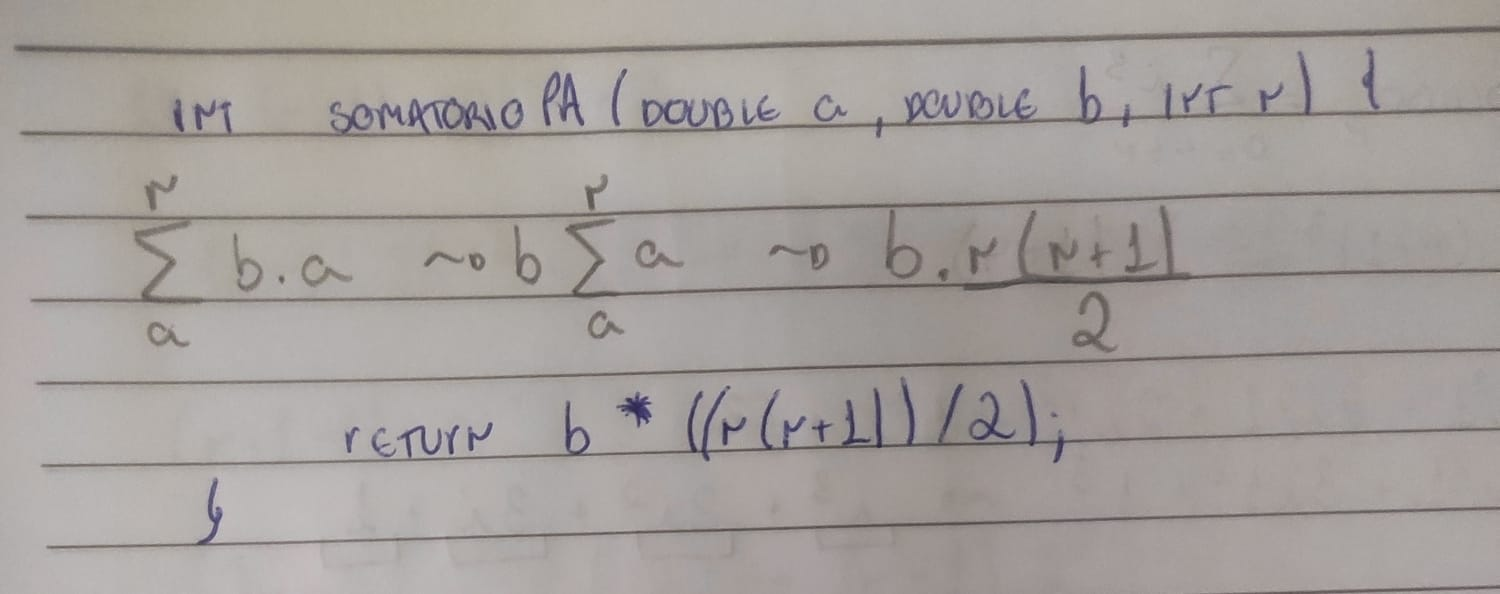 INT SOMATORIO PA (DOUBLE a, DOUBLE b, INT n) {
n n
∑ b.a ~> b ∑ a ~> b. n(n+1)
a a 2
return b * ((n(n+1))/2);
}